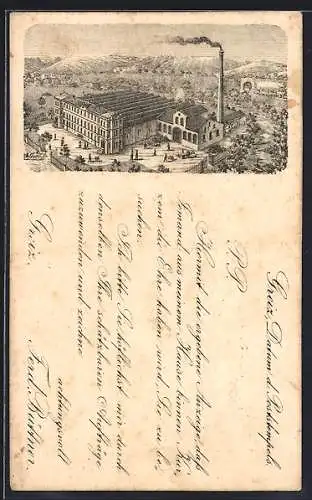 Greiz, Datum d. Poststempels.
P.P.
Hiermit die ergebene Anzeige, daß
Jemand aus meinem Hause binnen Kur-
zem die Ehre haben wird, Sie zu be-
suchen.
Ich bitte Sie höflichst mir durch
denselben Ihre schätzbaren Aufträge
zuzuwenden und zeichne
achtungsvoll
Greiz.
Ferd.